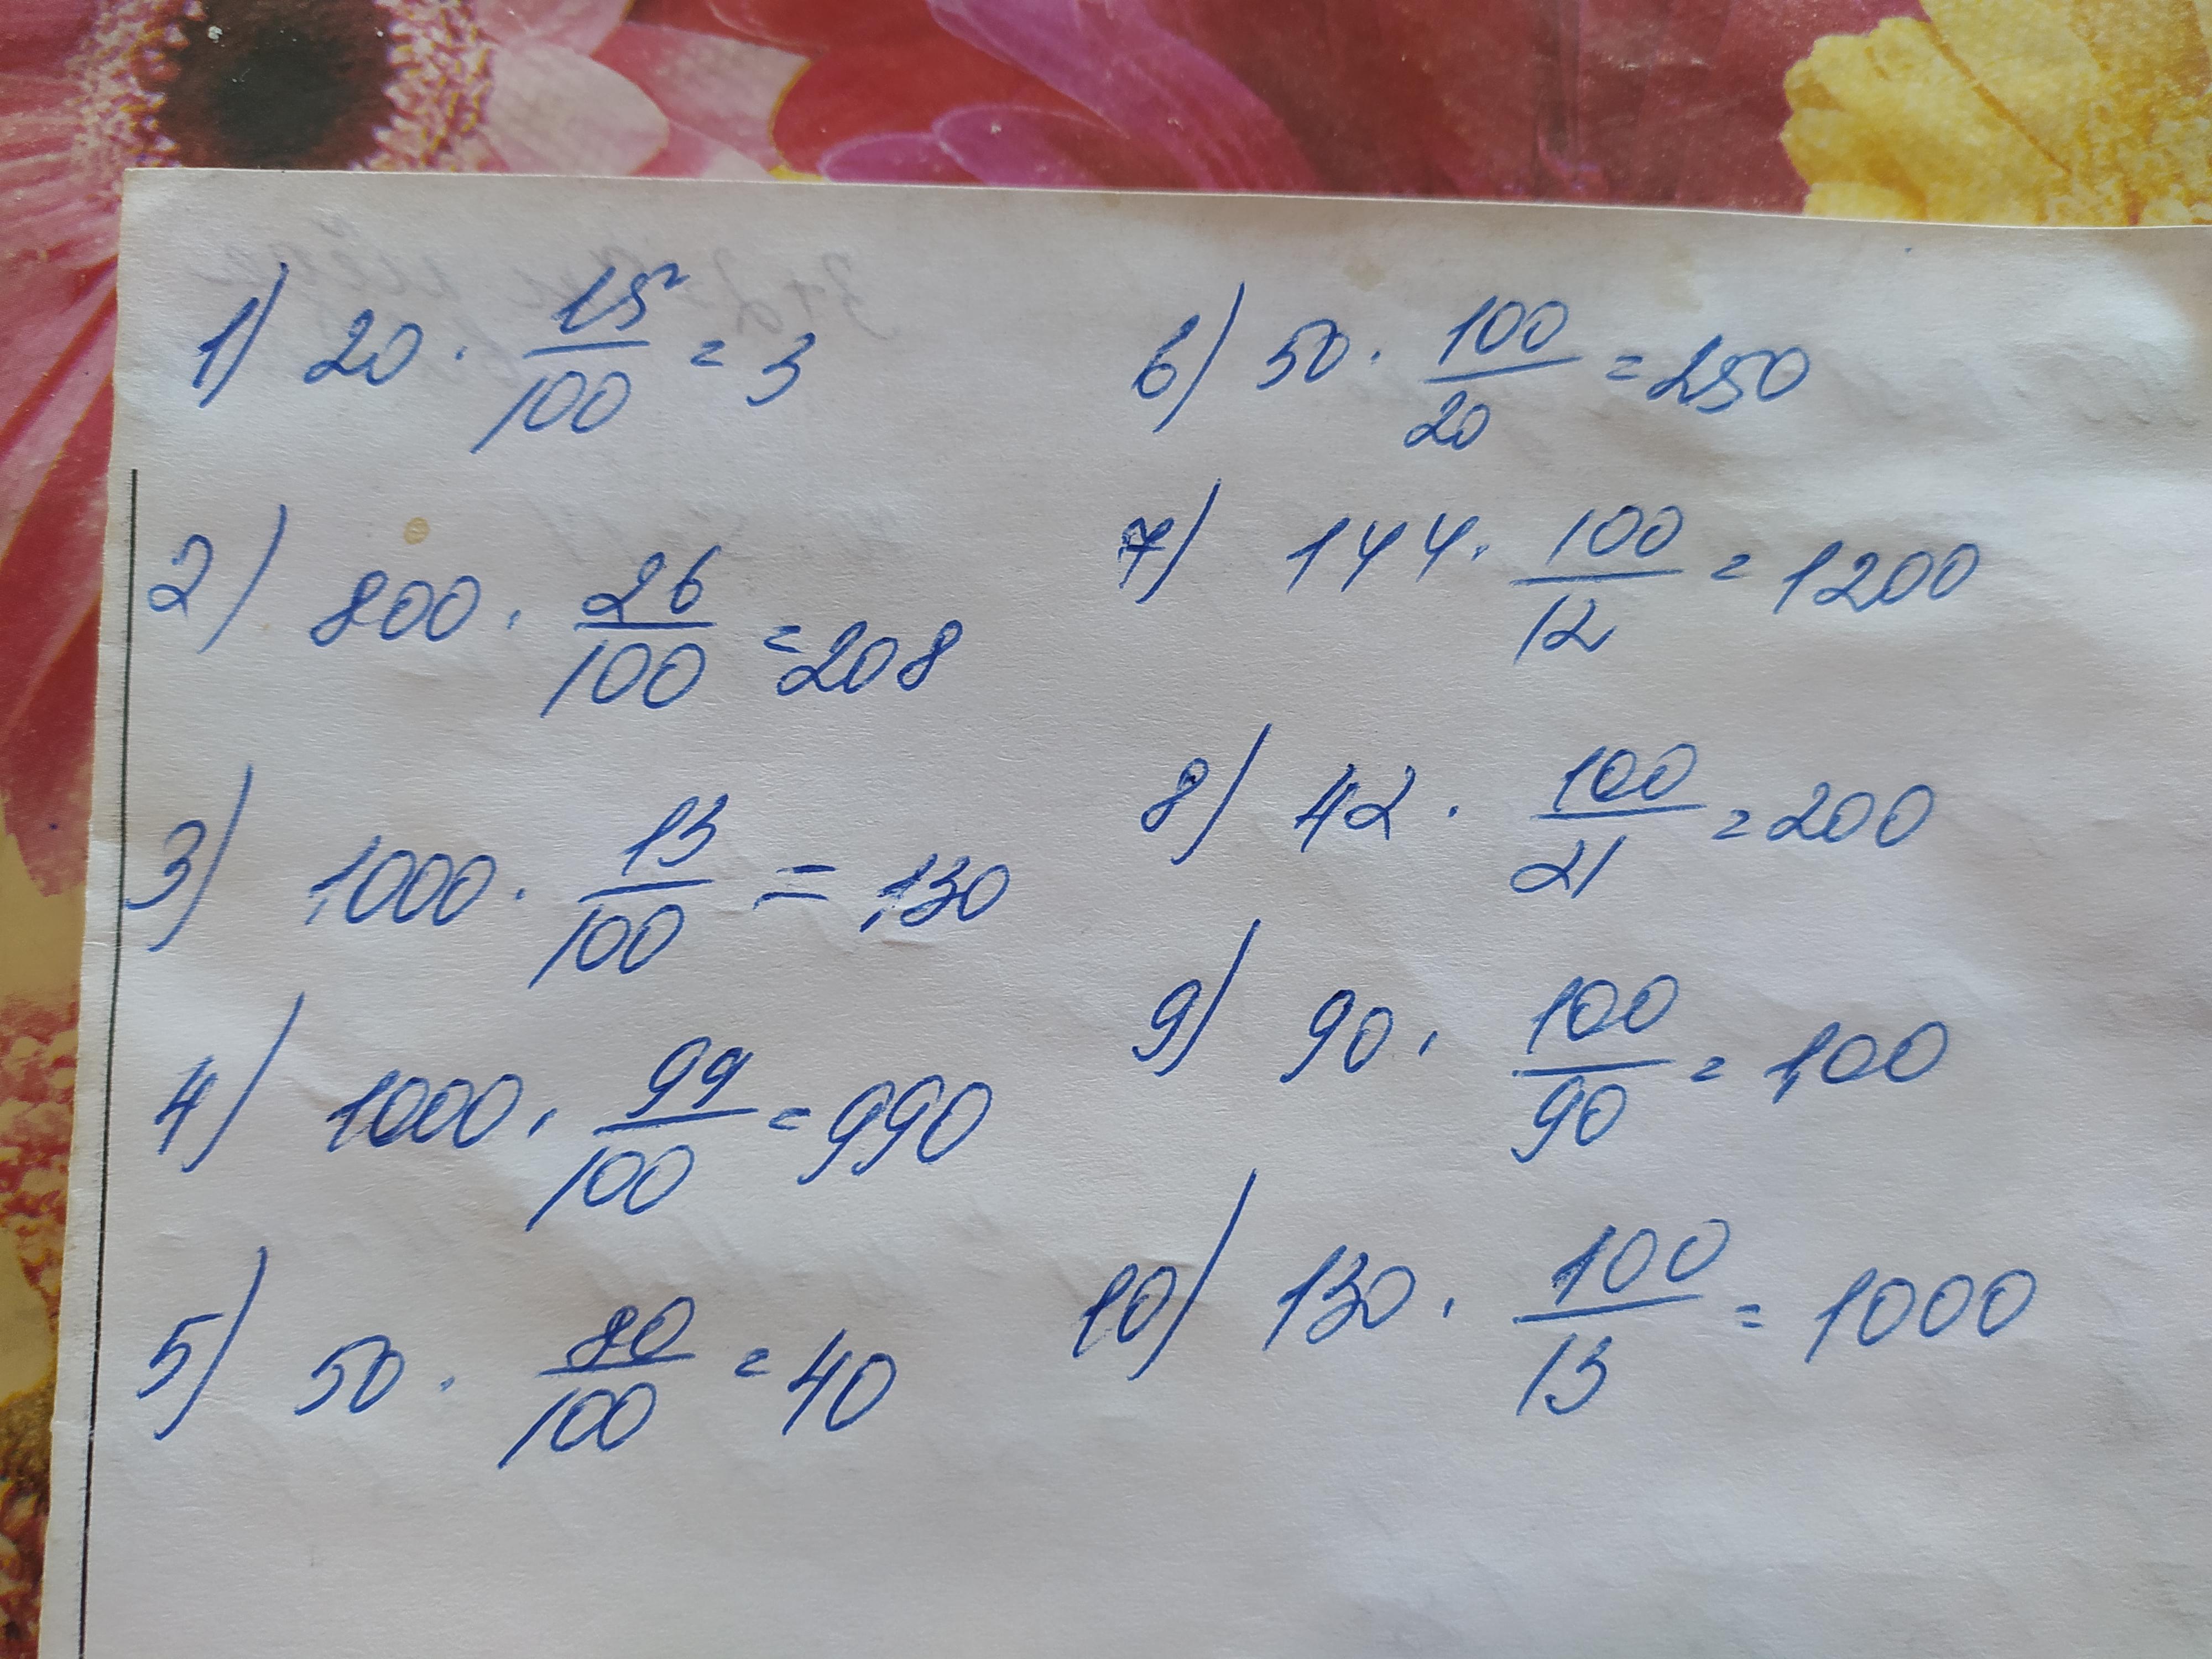 1) 20 · 15/100 = 3
2) 800 · 26/100 = 208
3) 1000 · 13/100 = 130
4) 1000 · 99/100 = 990
5) 50 · 80/100 = 40
6) 50 · 100/20 = 250
7) 144 · 100/12 = 1200
8) 42 · 100/21 = 200
9) 90 · 100/90 = 100
10) 130 · 100/13 = 1000